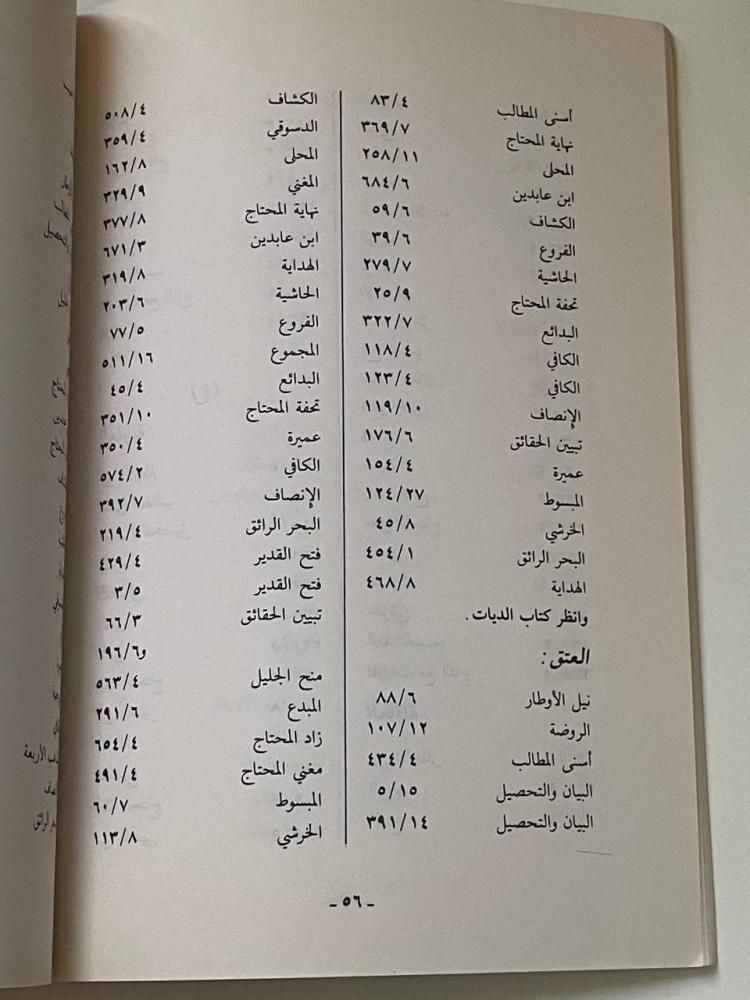 أسنى المطالب ٨٣/٤
نهاية المحتاج ٣٦٩/٧
المحلى ٢٥٨/١١
ابن عابدين ٦٨٤/٦
الكشاف ٥٩/٦
الفروع ٣٩/٦
الحاشية ٢٧٩/٧
تحفة المحتاج ٢٥/٩
البدائع ٣٢٢/٧
الكافي ١١٨/٤
الكافي ١٢٣/٤
الإنصاف ١١٩/١٠
تبيين الحقائق ١٧٦/٦
عميرة ١٥٤/٤
المبسوط ١٢٤/٢٧
الخرشي ٤٥/٨
البحر الرائق ٤٥٤/١
الهداية ٤٦٨/٨
وانظر كتاب الديات.
العتق:
نيل الأوطار ٨٨/٦
الروضة ١٠٧/١٢
أسنى المطالب ٤٣٤/٤
البيان والتحصيل ٥/١٥
البيان والتحصيل ٣٩١/١٤
الكشاف ٥٠٨/٤
الدسوقي ٣٥٩/٤
المحلى ١٦٢/٨
المغني ٣٢٩/٩
نهاية المحتاج ٣٧٧/٨
ابن عابدين ٦٧١/٣
الهداية ٣١٩/٨
الحاشية ٢٠٣/٦
الفروع ٧٧/٥
المجموع ٥١١/١٦
البدائع ٤٥/٤
تحفة المحتاج ٣٥١/١٠
عميرة ٣٥٠/٤
الكافي ٥٧٤/٢
الإنصاف ٣٩٢/٧
البحر الرائق ٢١٩/٤
فتح القدير ٤٢٩/٤
فتح القدير ٣/٥
تبيين الحقائق ٦٦/٣
و١٩٦/٦
منح الجليل ٥٦٣/٤
المبدع ٢٩١/٦
زاد المحتاج ٦٥٤/٤
مغني المحتاج ٤٩١/٤
المبسوط ٦٠/٧
الخرشي ١١٣/٨
- ٥٦ -